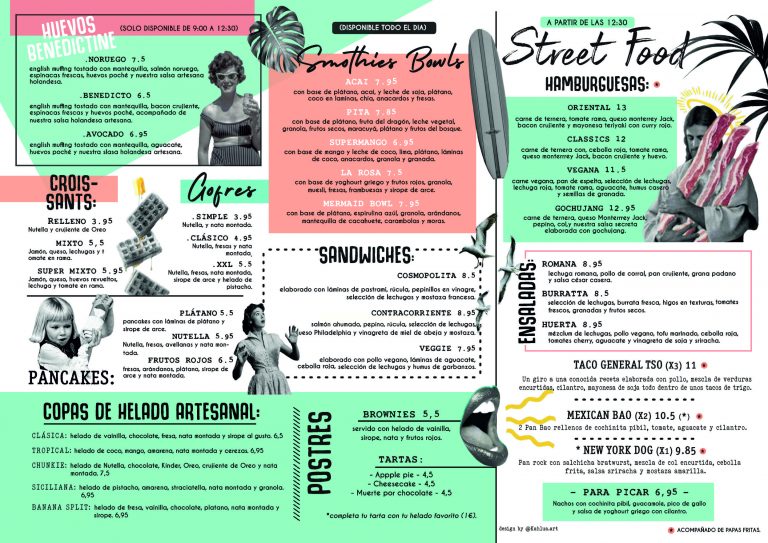 HUEVOS
BENEDICTINE
(SOLO DISPONIBLE DE 9:00 A 12:30)
.NORUEGO 7.5
english muffing tostado con mantequilla, salmón noruega,
espinacas frescas, huevos poché y nuestra salsa artesana
holandesa.
.BENEDICTO 6.5
english muffing tostado con mantequilla, bacon crujiente,
espinacas frescas y huevos poché, acompañado de
nuestra salsa holandesa artesana.
.AVOCADO 6.95
english muffing tostado con mantequilla, aguacate,
huevos poché y nuestra slasa holandesa artesana.
CROIS-
SANTS:
RELLENO 3.95
Nutella y crujiente de Oreo
MIXTO 5,5
Jamón, queso, lechugas y t
omate en rama.
SUPER MIXTO 5.95
Jamón, queso, huevos revueltos,
lechuga y tomate en rama.
Gofres
.SIMPLE 3.95
Nutella, y nata montada.
.CLÁSICO 4.95
Nutella, fresas y nata
montada.
.XXL 5.5
Nutella, fresas, nata montada,
sirope de arce y helado de
pistacho.
PÀNCAKES:
PLÁTANO 5.5
pancakes con láminas de plátano y
sirope de arce.
NUTELLA 5.95
Nutella, fresas, avellanas y nata mon-
tada.
FRUTOS ROJOS 6.5
fresas, arándanos, plátano, sirope de
arce y nata montada.
(DISPONIBLE TODO EL DIA)
Smothies Bowls
ACAI 7.95
con base de plátano, acai, y leche de soja, plátano,
coco en laminas, chia, anacardos y fresas.
PITA 7.85
con base de plátano, fruta del dragón, leche vegetal,
granola, frutos secos, maracuyá, plátano y frutas del bosque.
SUPERMANGO 6.95
con base de mango y leche de coco, lima, plátano, láminas
de coco, anacardos, granola y granada.
LA ROSA 7.5
con base de yoghourt griego y frutos rojos, granola,
muesli, fresa, frambuesas y sirope de arce.
MERMAID BOWL 7.95
con base de plátano, espirulina azúl, granola, arándanos,
mantequilla de cacahuete, carambolas y moras.
SANDWICHES:
COSMOPOLITA 8.5
elaborado con láminas de pastrami, rúcula, pepinillos en vinagre,
selección de lechugas y mostaza francesa.
CONTRACORRIENTE 8.95
salmón ahumado, pepino, rúcula, selección de lechugas,
queso Philadelphia y vinagreta de miel de abeja y mostaza.
VEGGIE 7.95
elaborado con pollo vegano, láminas de aguacate,
cebolla roja, selección de lechugas y humus de garbanzos.
COPAS DE HELADO ARTESANAL:
CLÁSICA: helado de vainilla, chocolate, fresa, nata montada y sirope al gusto. 6,5
TROPICAL: helado de coco, mango, amarena, nata montada y cerezas. 6,95
CHUNKIE: helado de Nutella, chocolate, Kinder, Oreo, crujiente de Oreo y nata
montada. 7,5
SICILIANA: helado de pistacho, amarena, straciatella, nata montada y granola.
6,95
BANANA SPLIT: helado de fresa, vainilla, chocolate, platano, nata montada y
sirope. 6,95
POSTRES
BROWNIES 5,5
servido con helado de vainilla,
sirope, nata y frutos rojos.
TARTAS:
- Appple pie - 4,5
- Cheesecake - 4,5
- Muerte por chocolate - 4,5
*completa tu tarta con tu helado favorito (1€).
A PARTIR DE LAS 12:30
Street Food
HAMBURGUESAS:
ORIENTAL 13
carne de ternera, tomate rama, queso monterrey Jack,
bacon crujiente y mayonesa teriyaki con curry rojo.
CLASSICS 12
carne de ternera con, cebolla roja, tomate rama,
queso monterrey Jack, bacon crujiente y huevo.
VEGANA 11,5
carne vegana, pan de espelta, selección de lechugas,
lechuga roja, tomate rama, aguacate, humus casero
y semillas de granada.
GOCHUJANG 12.95
carne de ternera, queso Monterrey Jack,
pepino, col,y nuestra salsa secreta
elaborada con gochujang.
ENSALADAS:
ROMANA 8.95
lechuga romana, pollo de corral, pan crujiente, grana padano
y salsa césar casera.
BURRATTA 8.5
selección de lechugas, burrata fresca, higos en texturas, tomates
frescos, granadas y frutos secos.
HUERTA 8.95
mézclum de lechugas, pollo vegano, tofu marinado, cebolla roja,
tomates cherry, aguacate y vinagreta de soja y siracha.
TACO GENERAL TSO (X3) 11
Un giro a una conocida receta elaborada con pollo, mezcla de verduras
encurtidas, cilantro, mayonesa de soja todo dentro de unos tacos de trigo.
MEXICAN BAO (X2) 10.5 (*)
2 Pan Bao rellenos de cochinita pibil, tomate, aguacate y cilantro.
* NEW YORK DOG (X1) 9.85
Pan rock con salchicha bratwurst, mezcla de col encurtida, cebolla
frita, salsa sriracha y mostaza amarilla.
- PARA PICAR 6,95 -
Nachos con cochinita pibil, guacamole, pico de gallo
y salsa de yoghourt griego con cilantro.
design by @Kahlua.art
ACOMPAÑADO DE PAPAS FRITAS.